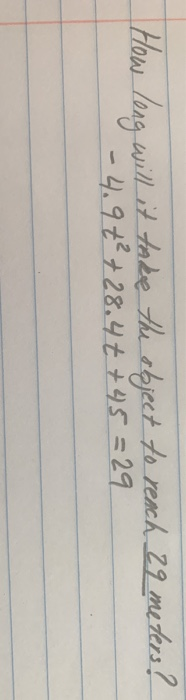 How long will it take the object to reach 29 meters?
- 4.9t² + 28.4t + 45 = 29